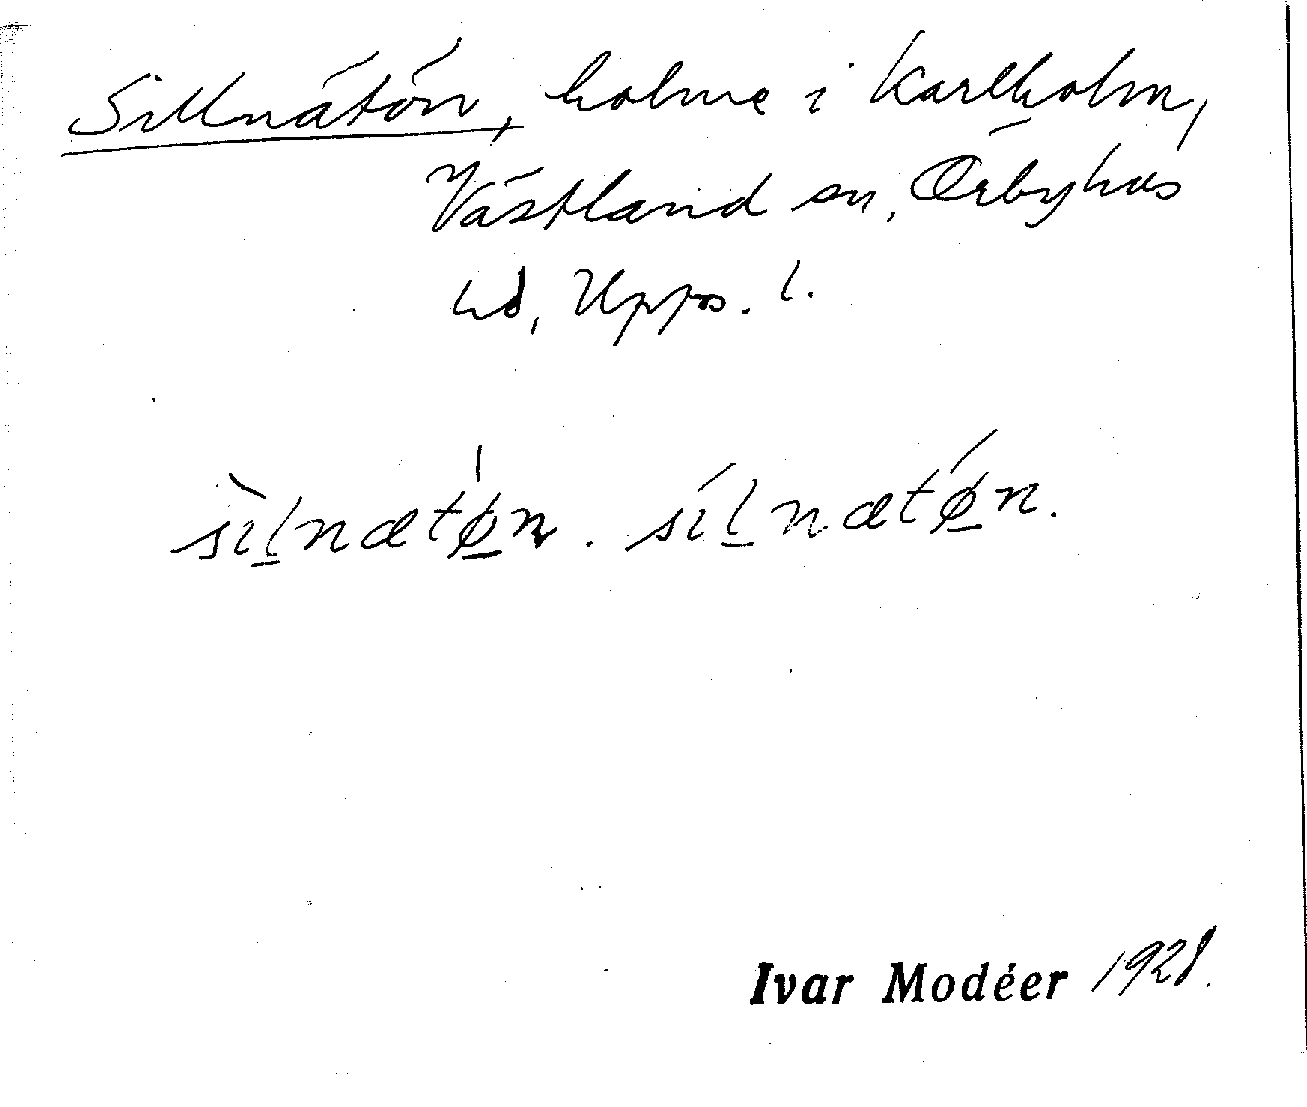 Sillnätön, holme i Karlholm,
Västland sn, Örbyhus
hd, Upps. l.
sìlnætø̍n. sílnætǿn.
Ivar Modéer 1928.